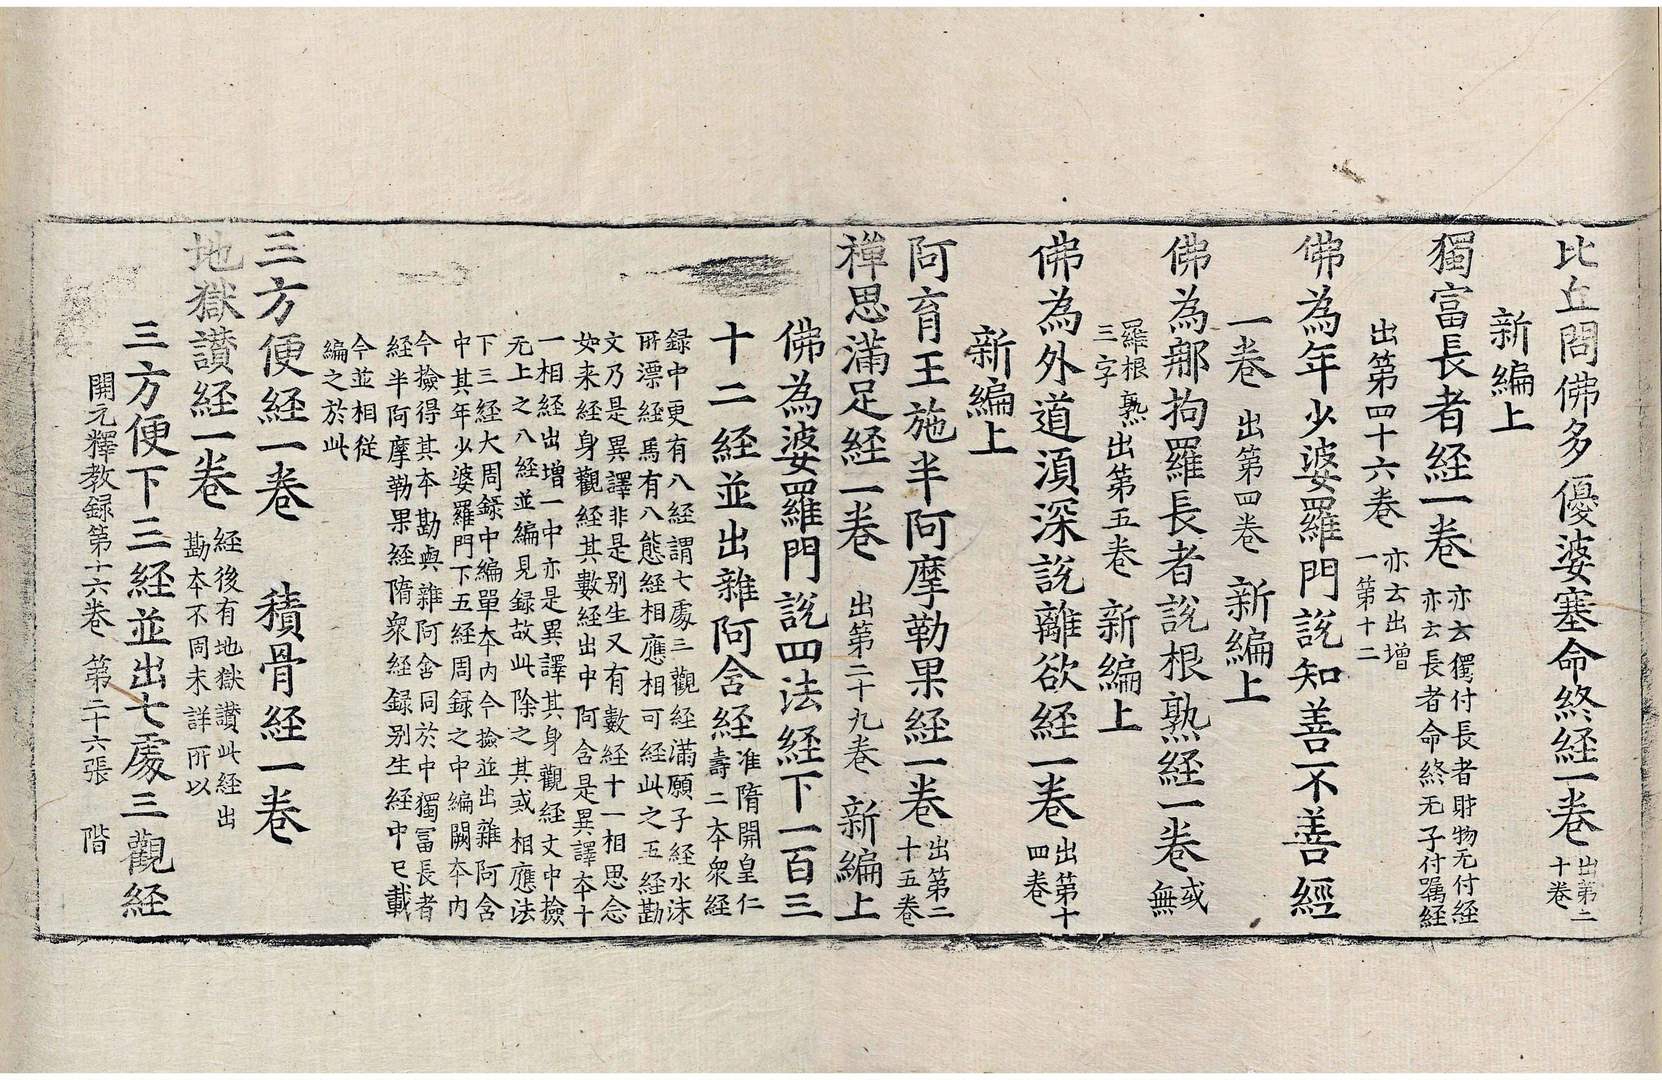 比丘問佛多優婆塞命終經一卷出第二十卷
新編上
獨富長者經一卷亦云獨付長者財物无付經亦云長者命終无子付囑經
出第四十六卷亦云出增一第十二
佛為年少婆羅門說知善不善經
一卷出第四卷新編上
佛為郍拘羅長者說根熟經一卷或無
羅根熟三字出第五卷新編上
佛為外道湏深說離欲經一卷出第十四卷
新編上
阿育王施半阿摩勒果經一卷出第二十五卷
禪思滿足經一卷出第二十九卷新編上
佛為婆羅門說四法經下一百三
十二經並出雜阿含經准隋開皇仁壽二本衆經
録中更有八經謂七處三觀經滿願子經水沫
所漂經馬有八態經相應相可經此之五經勘
文乃是異譯非是别生又有數經十一相思念
如来經身觀經其數經出中阿含是異譯夲十
一相經出增一中亦是異譯其身觀經文中撿
无上之八經並編見録故此除之其㦯相應法
下三經大周録中編單夲内今撿並出雜阿含
中其年少婆羅門下五經周録之中編闕夲内
今撿得其夲勘與雜阿含同於中獨冨長者
經半阿摩勒果經隋衆經録别生經中已載
今並相從
編之於此
三方便經一卷　積骨經一卷
地獄讃經一卷經後有地獄讃此經出勘本不同未詳所以
三方便下三經並出七處三觀經
開元釋教録第十六卷　第二十六張　階